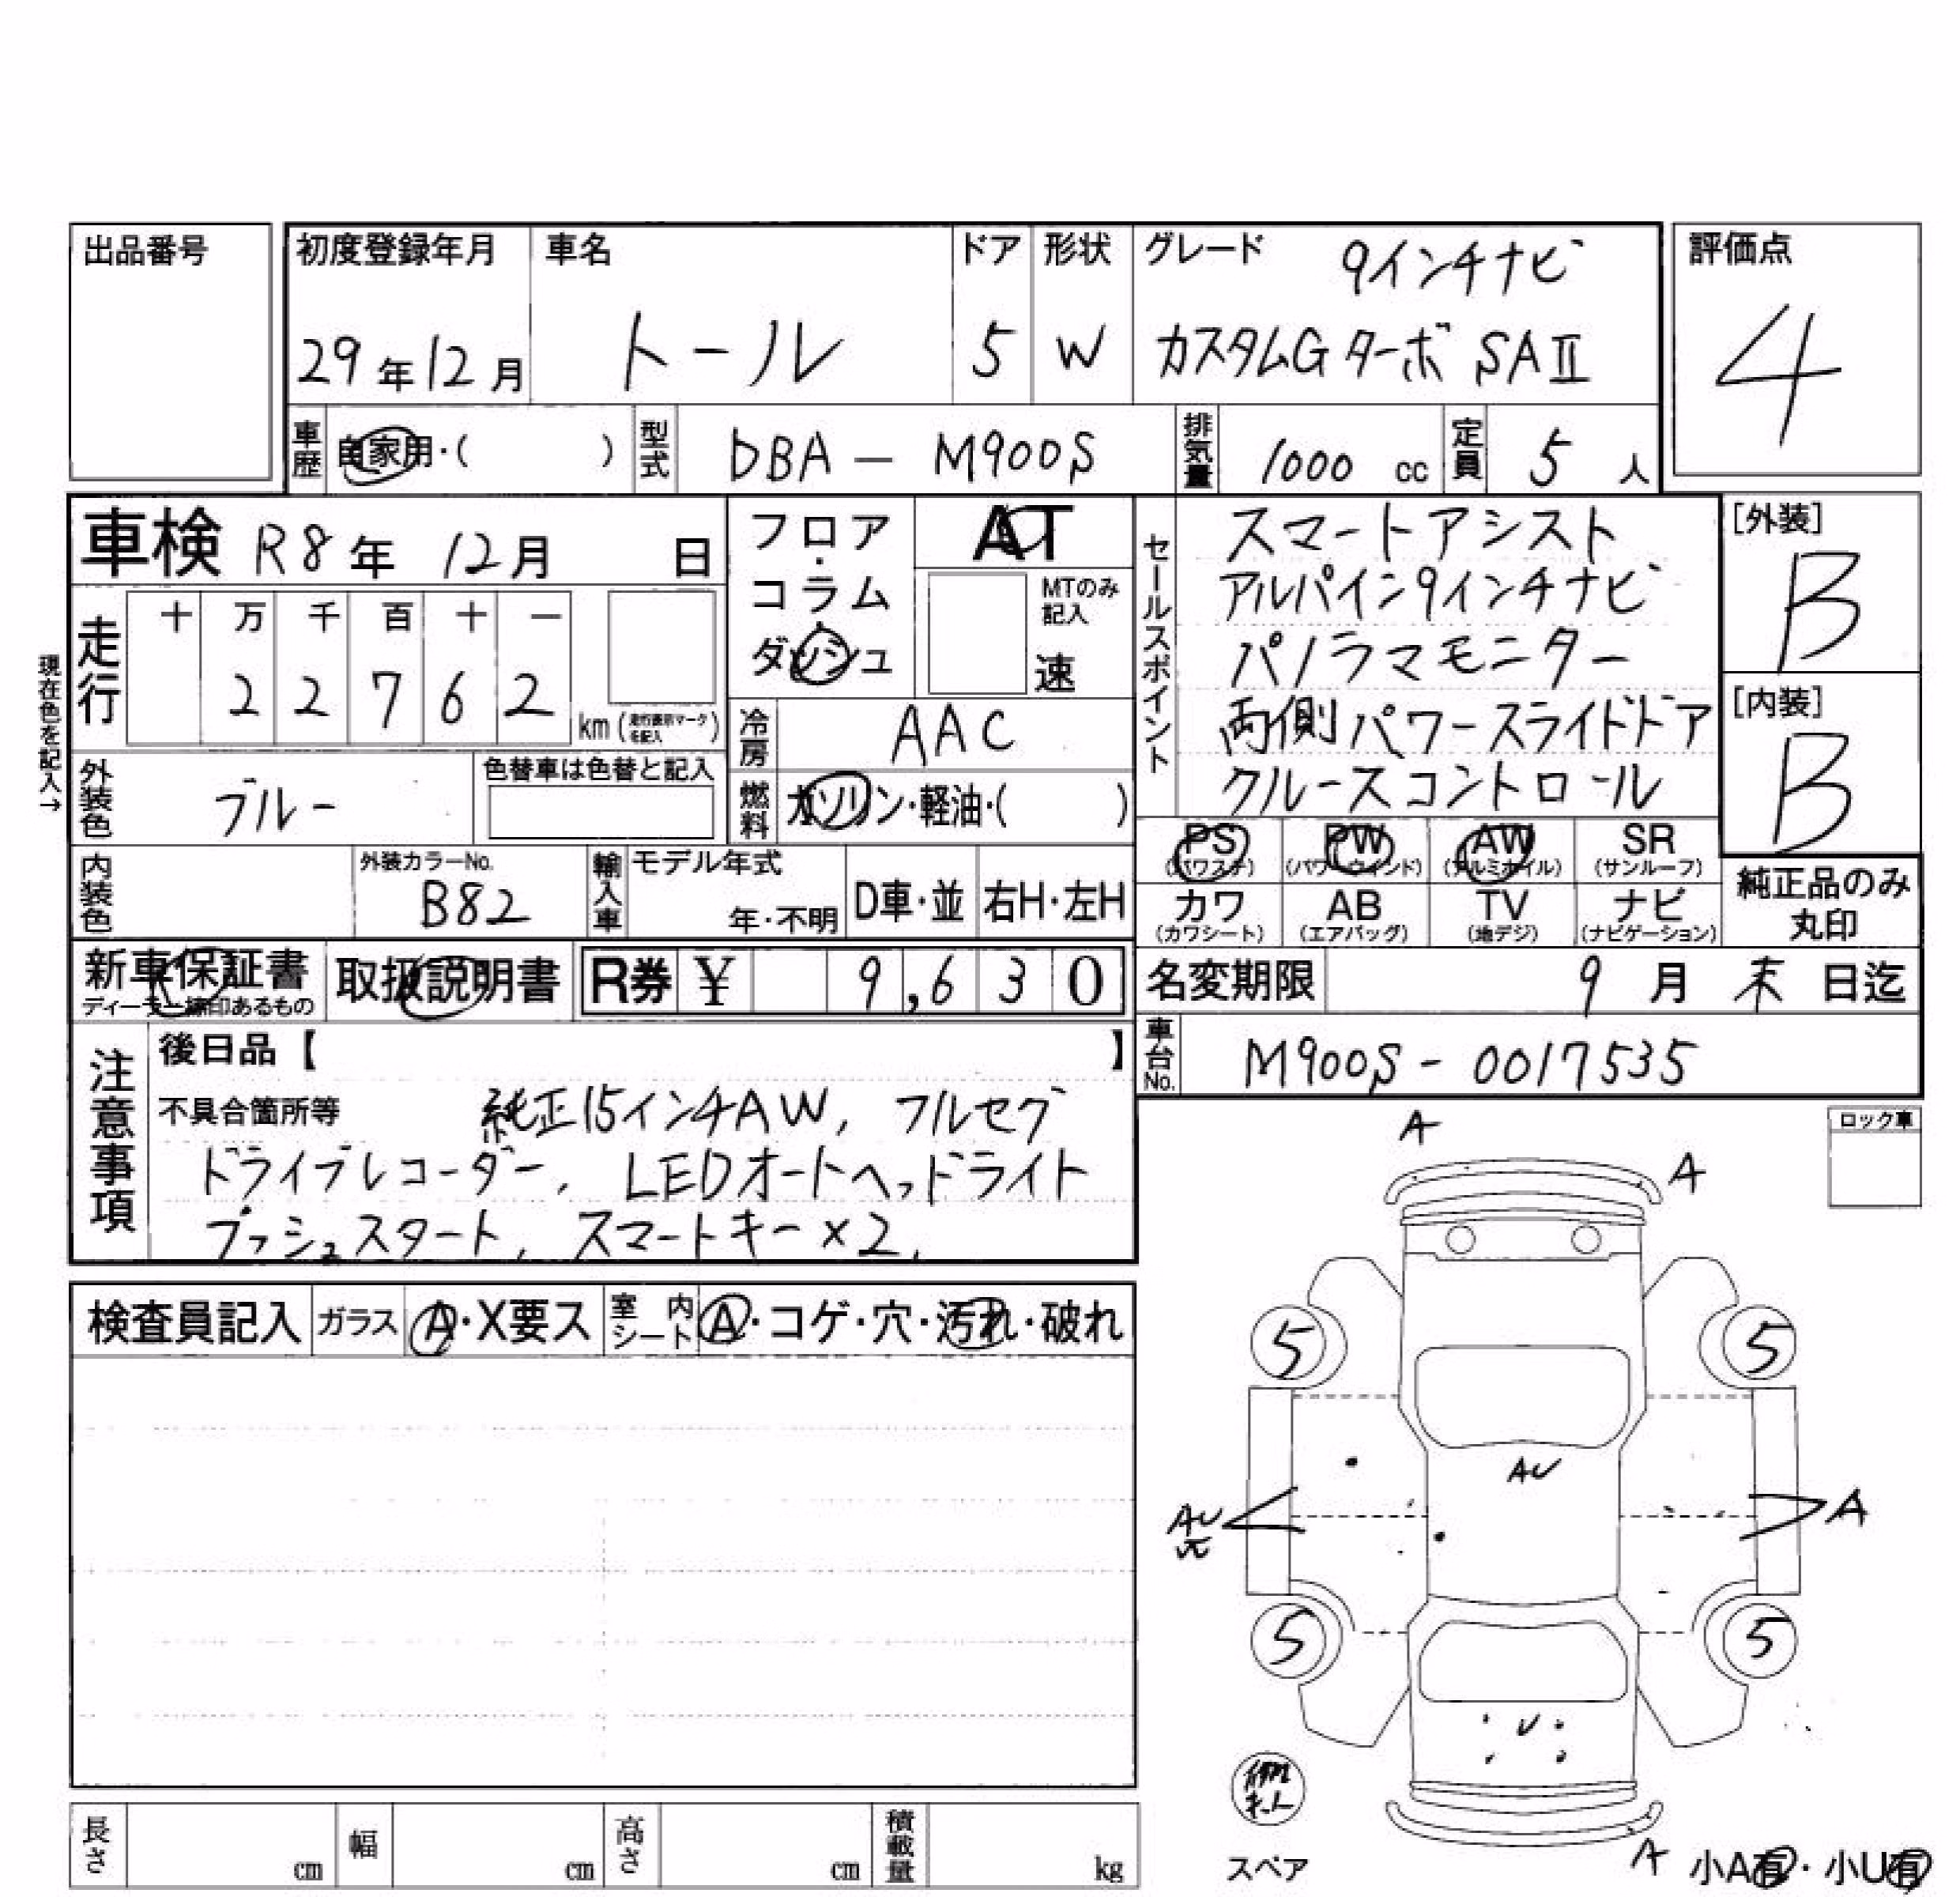 出品番号
初度登録年月 車名 ドア 形状 グレード 9インチナビ 評価点
29年12月 トール 5 W カスタムG ターボ SAⅡ 4
車歴 自家用・( ) 型式 DBA — M900S 排気量 1000 cc 定員 5 人
車検 R8年 12月 日
フロア・コラム・ダッシュ AT
MTのみ記入
速
走行 十 万 千 百 十 一
2 2 7 6 2 km (走行表示マークを記入)
現在色を記入→
冷房 AAC
外装色 ブルー 色替車は色替と記入
燃料 ガソリン・軽油・( )
内装色 外装カラーNo. B82 輸入車 モデル年式 年・不明 D車・並 右H・左H
セールスポイント
スマートアシスト
アルパイン9インチナビ
パノラマモニター
両側パワースライドドア
クルースコントロール
[外装] B
[内装] B
PS (パワステ) PW (パワーウインド) AW (アルミホイル) SR (サンルーフ)
カワ (カワシート) AB (エアバッグ) TV (地デジ) ナビ (ナビゲーション)
純正品のみ丸印
新車保証書 ディーラー締印あるもの 取扱説明書 R券 ¥ 9,630
名変期限 9 月 末 日迄
車台No. M900S - 0017535
注意事項
後日品【 】
不具合箇所等 純正15インチAW, フルセグ
ドライブレコーダー, LEDオートヘッドライト
プッシュスタート, スマートキー×2,
検査員記入 ガラス A・X要ス 室内シート A・コゲ・穴・汚れ・破れ
ロック車
A
A
5 5
AU
AU
A
5 5
U
スペア
A 小A有・小U有
長さ cm 幅 cm 高さ cm 積載量 kg